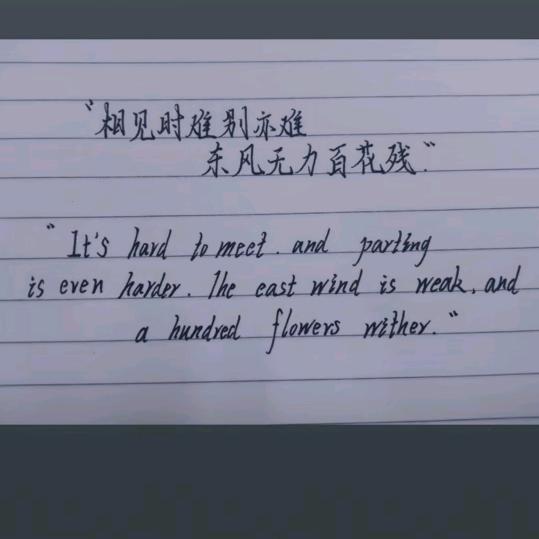 "相见时难别亦难
东风无力百花残"
"It's hard to meet. and parting
is even harder. The east wind is weak, and
a hundred flowers wither."